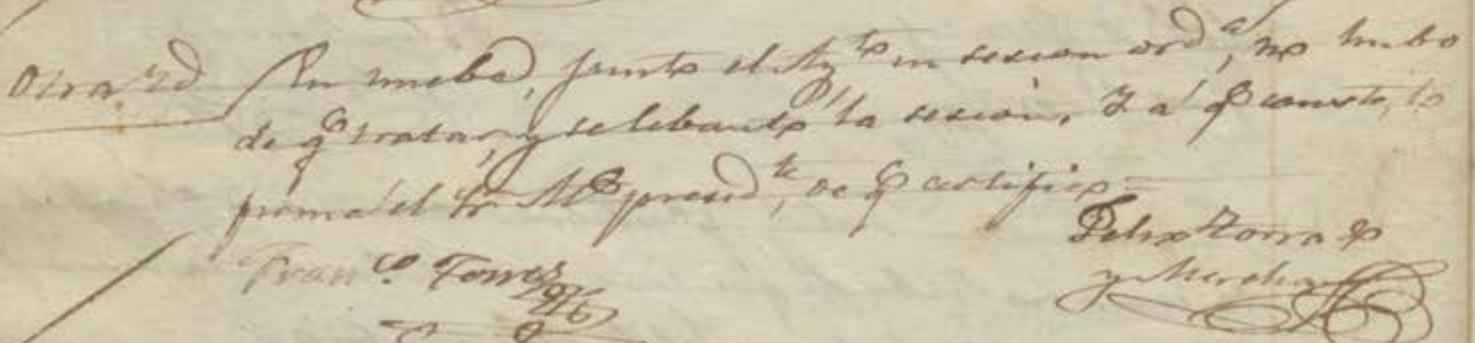 Otra. id En nuebe, junto el Ayto en sesion orda, no hubo
de q tratar, y se lebanto la sesion. Y a q conste, lo
firma el Sr Ale presidte, de q certifico=
Franco Torres Felix Zorra
y